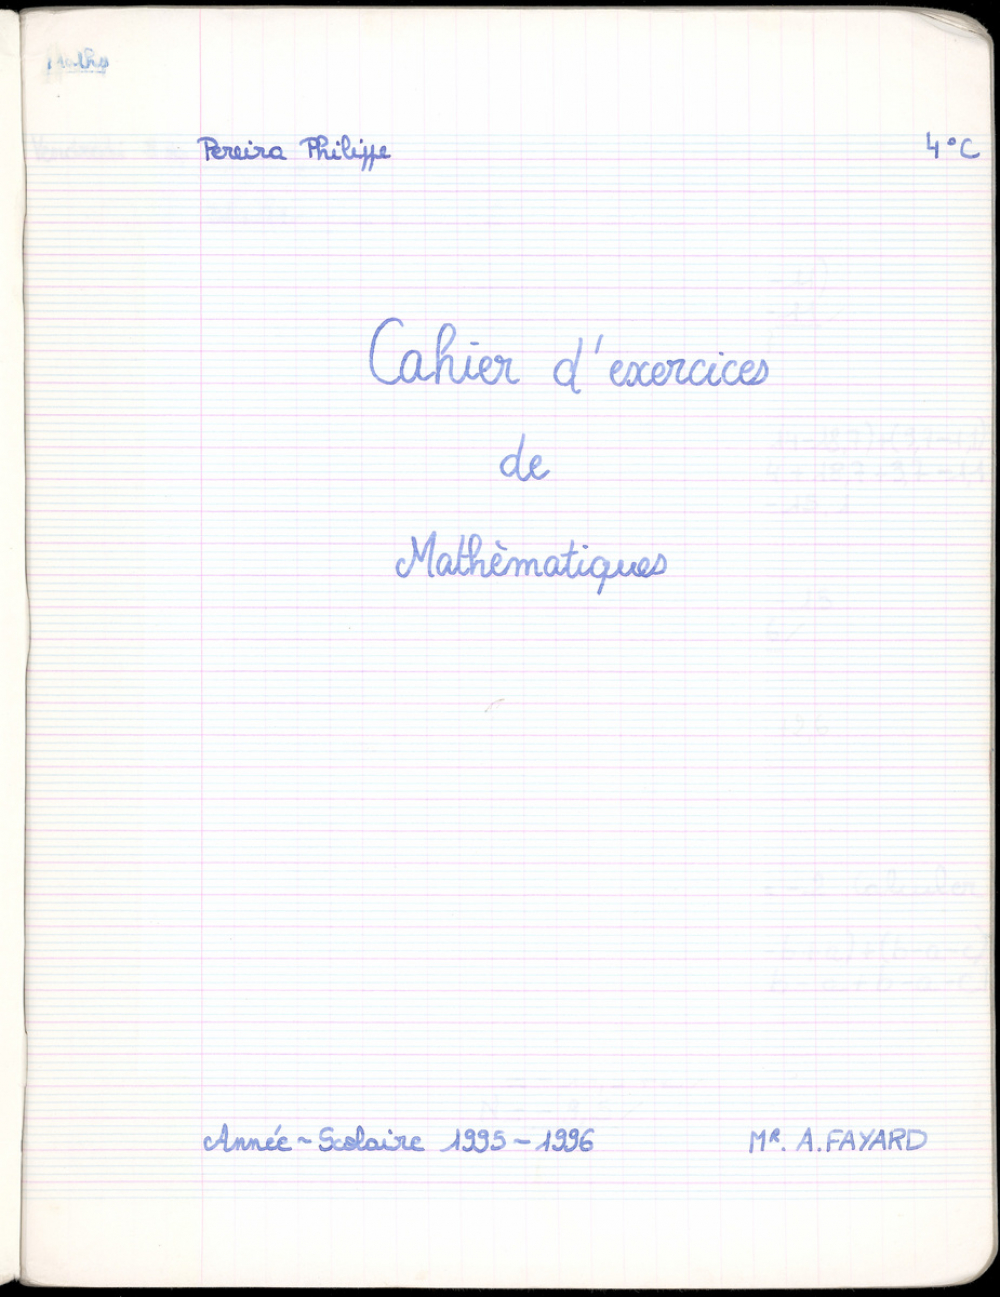 Maths
Pereira Philippe 4°C
Cahier d'exercices
de
Mathèmatiques
Année - Scolaire 1995 - 1996 MR. A. FAYARD